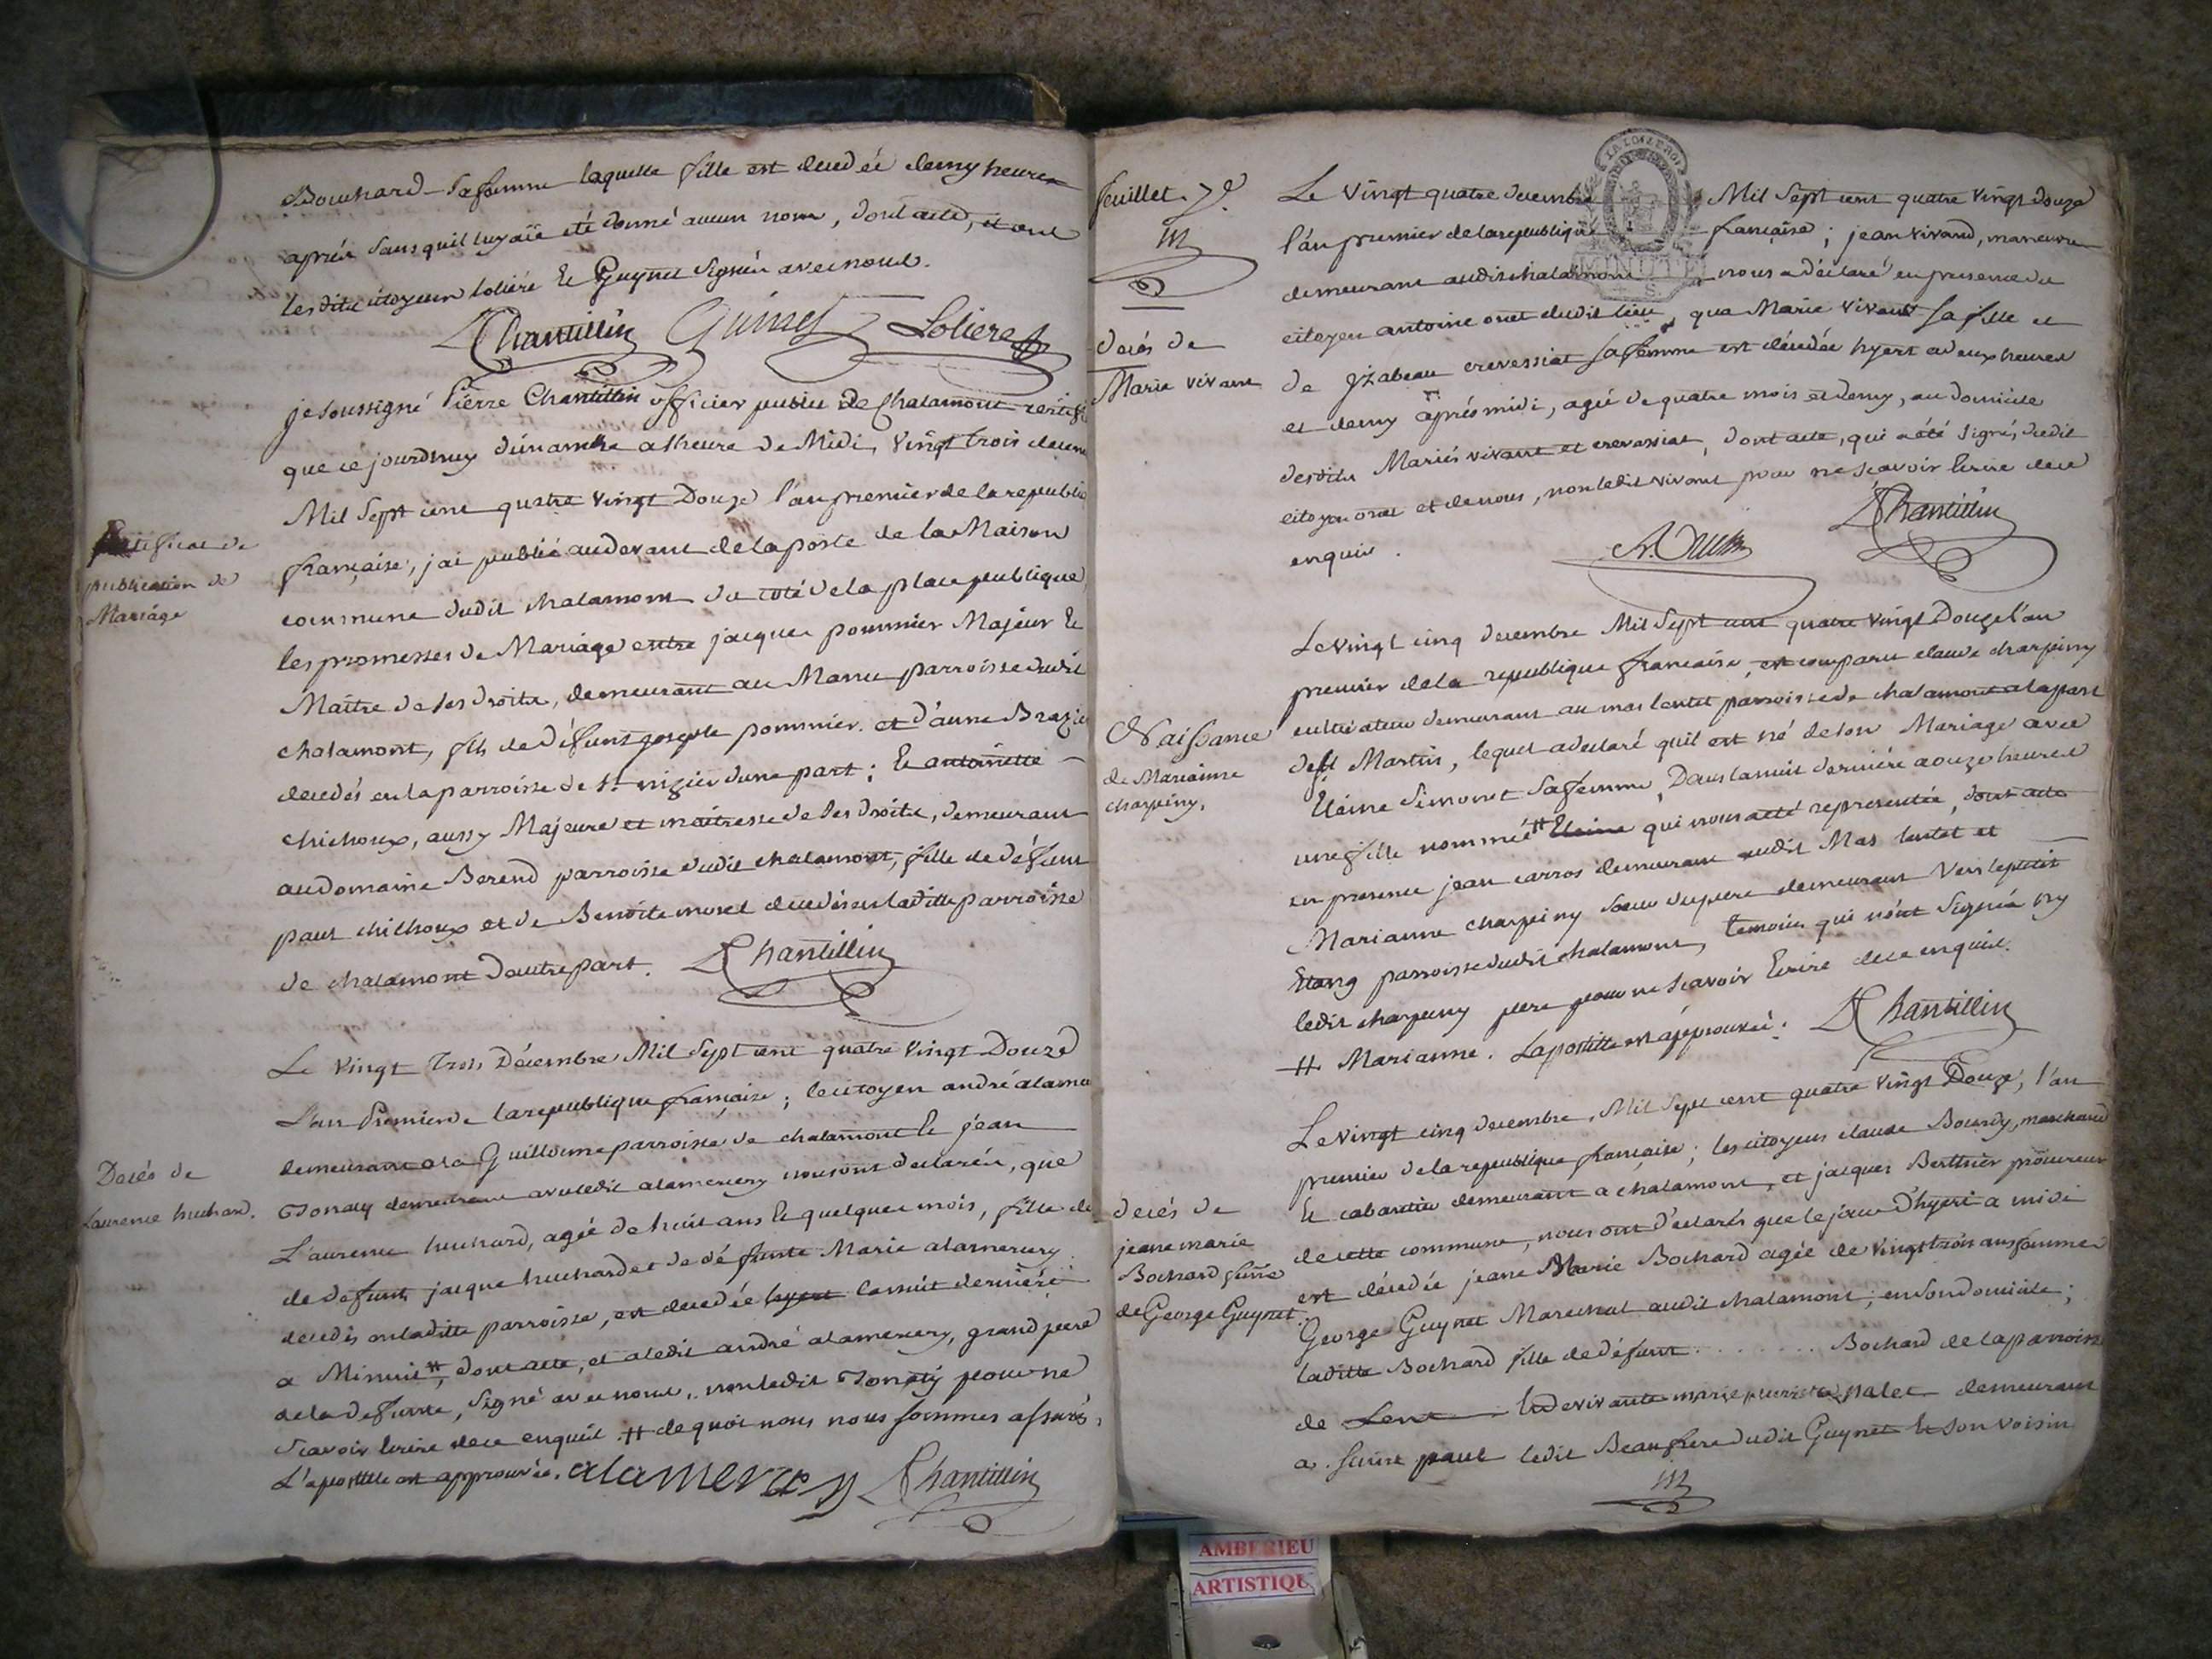 Bouchard sa femme laquelle fille est decedée demy heure
aprés sans quil luy aïe été donné aucun nom, dont acte, et ont
lesdits citoyens loliére Et Guynet Signés avec nous.
Chantillin Guinet Loliere
je soussigné Pierre Chantillin officier public de Chalamont certifi
que ce jourdhuy dimanche a lheure de Midi, Vingt trois decem
Mil Sept cent quatre vingt Douze l'an premier de la republi
française, j'ai publié audevant de la porte de la Maison
commune dudit chalamont du coté de la place publique
les promesses de Mariage entre jacques pommier Majeur Et
Maitre de ses droits, demeurant au Manu parroisse dudit
chalamont, fils de défunt joseph pommier et d'anne Brazie
decedés en la parroisse de St nizier dune part; Et antoinette
chichoux, aussy Majeure et maitresse de ses droits, demeurant
au Domaine Berend parroisse dudit chalamont, fille de défunt
paul chichoux et de Benoite morel decedés en laditte parroisse
de chalamont d'autre part. Chantillin
Certificat de
publication de
Mariage
Le Vingt Trois Décembre Mil Sept cent quatre vingt Douze
L'an Premier de la republique française; le citoyen andré alame
demeurant a la Guillome parroisse de chalamont Et jean
Tonaty demeurant avec ledit alamercery nous ont declarés, que
Laurence huchard, agée de huit ans Et quelques mois, fille de
de defunt jacque huchard et de défunte Marie alamercery
decedés en laditte parroisse, est decedée hyert la nuit derniére
a Minuit #, dont acte, et a ledit andré alamercery, grand pere
de la defunte, Signé avec nous, non ledit Tonaty pour ne
scavoir Ecrire de ce enquis. # de quoi nous nous sommes assurés,
L'apostille est approuvée. alamercery Chantillin
Decés de
Laurence huchard.
feuillet 7e.
Le Vingt quatre decembre Mil Sept cent quatre Vingt douze
l'an premier de la republique française; jean vivand, manœuvre
demeurant audit chalamont nous a déclaré en presence du
citoyen antoine oret dudit lieu, que Marie Vivant sa fille et
de Izabeau crevessiat sa femme est décédée hyert a deux heures
et demy aprés midi, agée de quatre mois et demy, au domicile
desdits Mariés vivant et crevassiat, dont acte, qui a été signé, dudit
citoyen oret et de nous, non ledit vivant pour ne scavoir Ecrire de ce
enquis.
Chantillin
MINUTE
decés de
Marie vivant
Le vingt cinq decembre Mil Sept cent quatre vingt Douze l'an
premier de la republique française, est comparu claude charpiny
cultivateur demeurant au mas lentet parroisse de chalamont a la part
de St Martin, lequel a declaré quil est né de son Mariage avec
Eléine Simonet sa femme, Dans la nuit derniére a onze heures
une fille nommée # Eleine qui nous a été representée, dont acte
en presence jean carros demeurant audit Mas lentet et
Marianne charpiny sœur du pere demeurant Vers le petit
Etang parroisse dudit chalamont, temoins qui n'ont Signés ny
ledit charpiny pere pour ne scavoir Ecrire de ce enquis.
# Marianne. Lapostille est approuvée. Chantillin
Naissance
de Marianne
charpiny.
Le vingt cinq decembre, Mil Sept cent quatre vingt Douze, l'an
premier de la republique française; les citoyens claude Bourdy, marchand
Et cabartier demeurant a chalamont, et jacques Berthier procureur
de cette commune, nous ont déclarés que le jour D'hyert a midi
est décedée jeane Marie Bochard agée de Vingt trois ans femme
George Guynet Marechal audit chalamont, en son domicile;
laditte Bochard fille de défunt ........ Bochard de la parroisse
de Lent de vivante marie pierrette palet demeurant
a saint paul ledit Beaufrere dudit Guynet Et son voisin
decés de
jeane marie
Bochard feme
de George Guynet.
AMBERIEU
ARTISTIQU